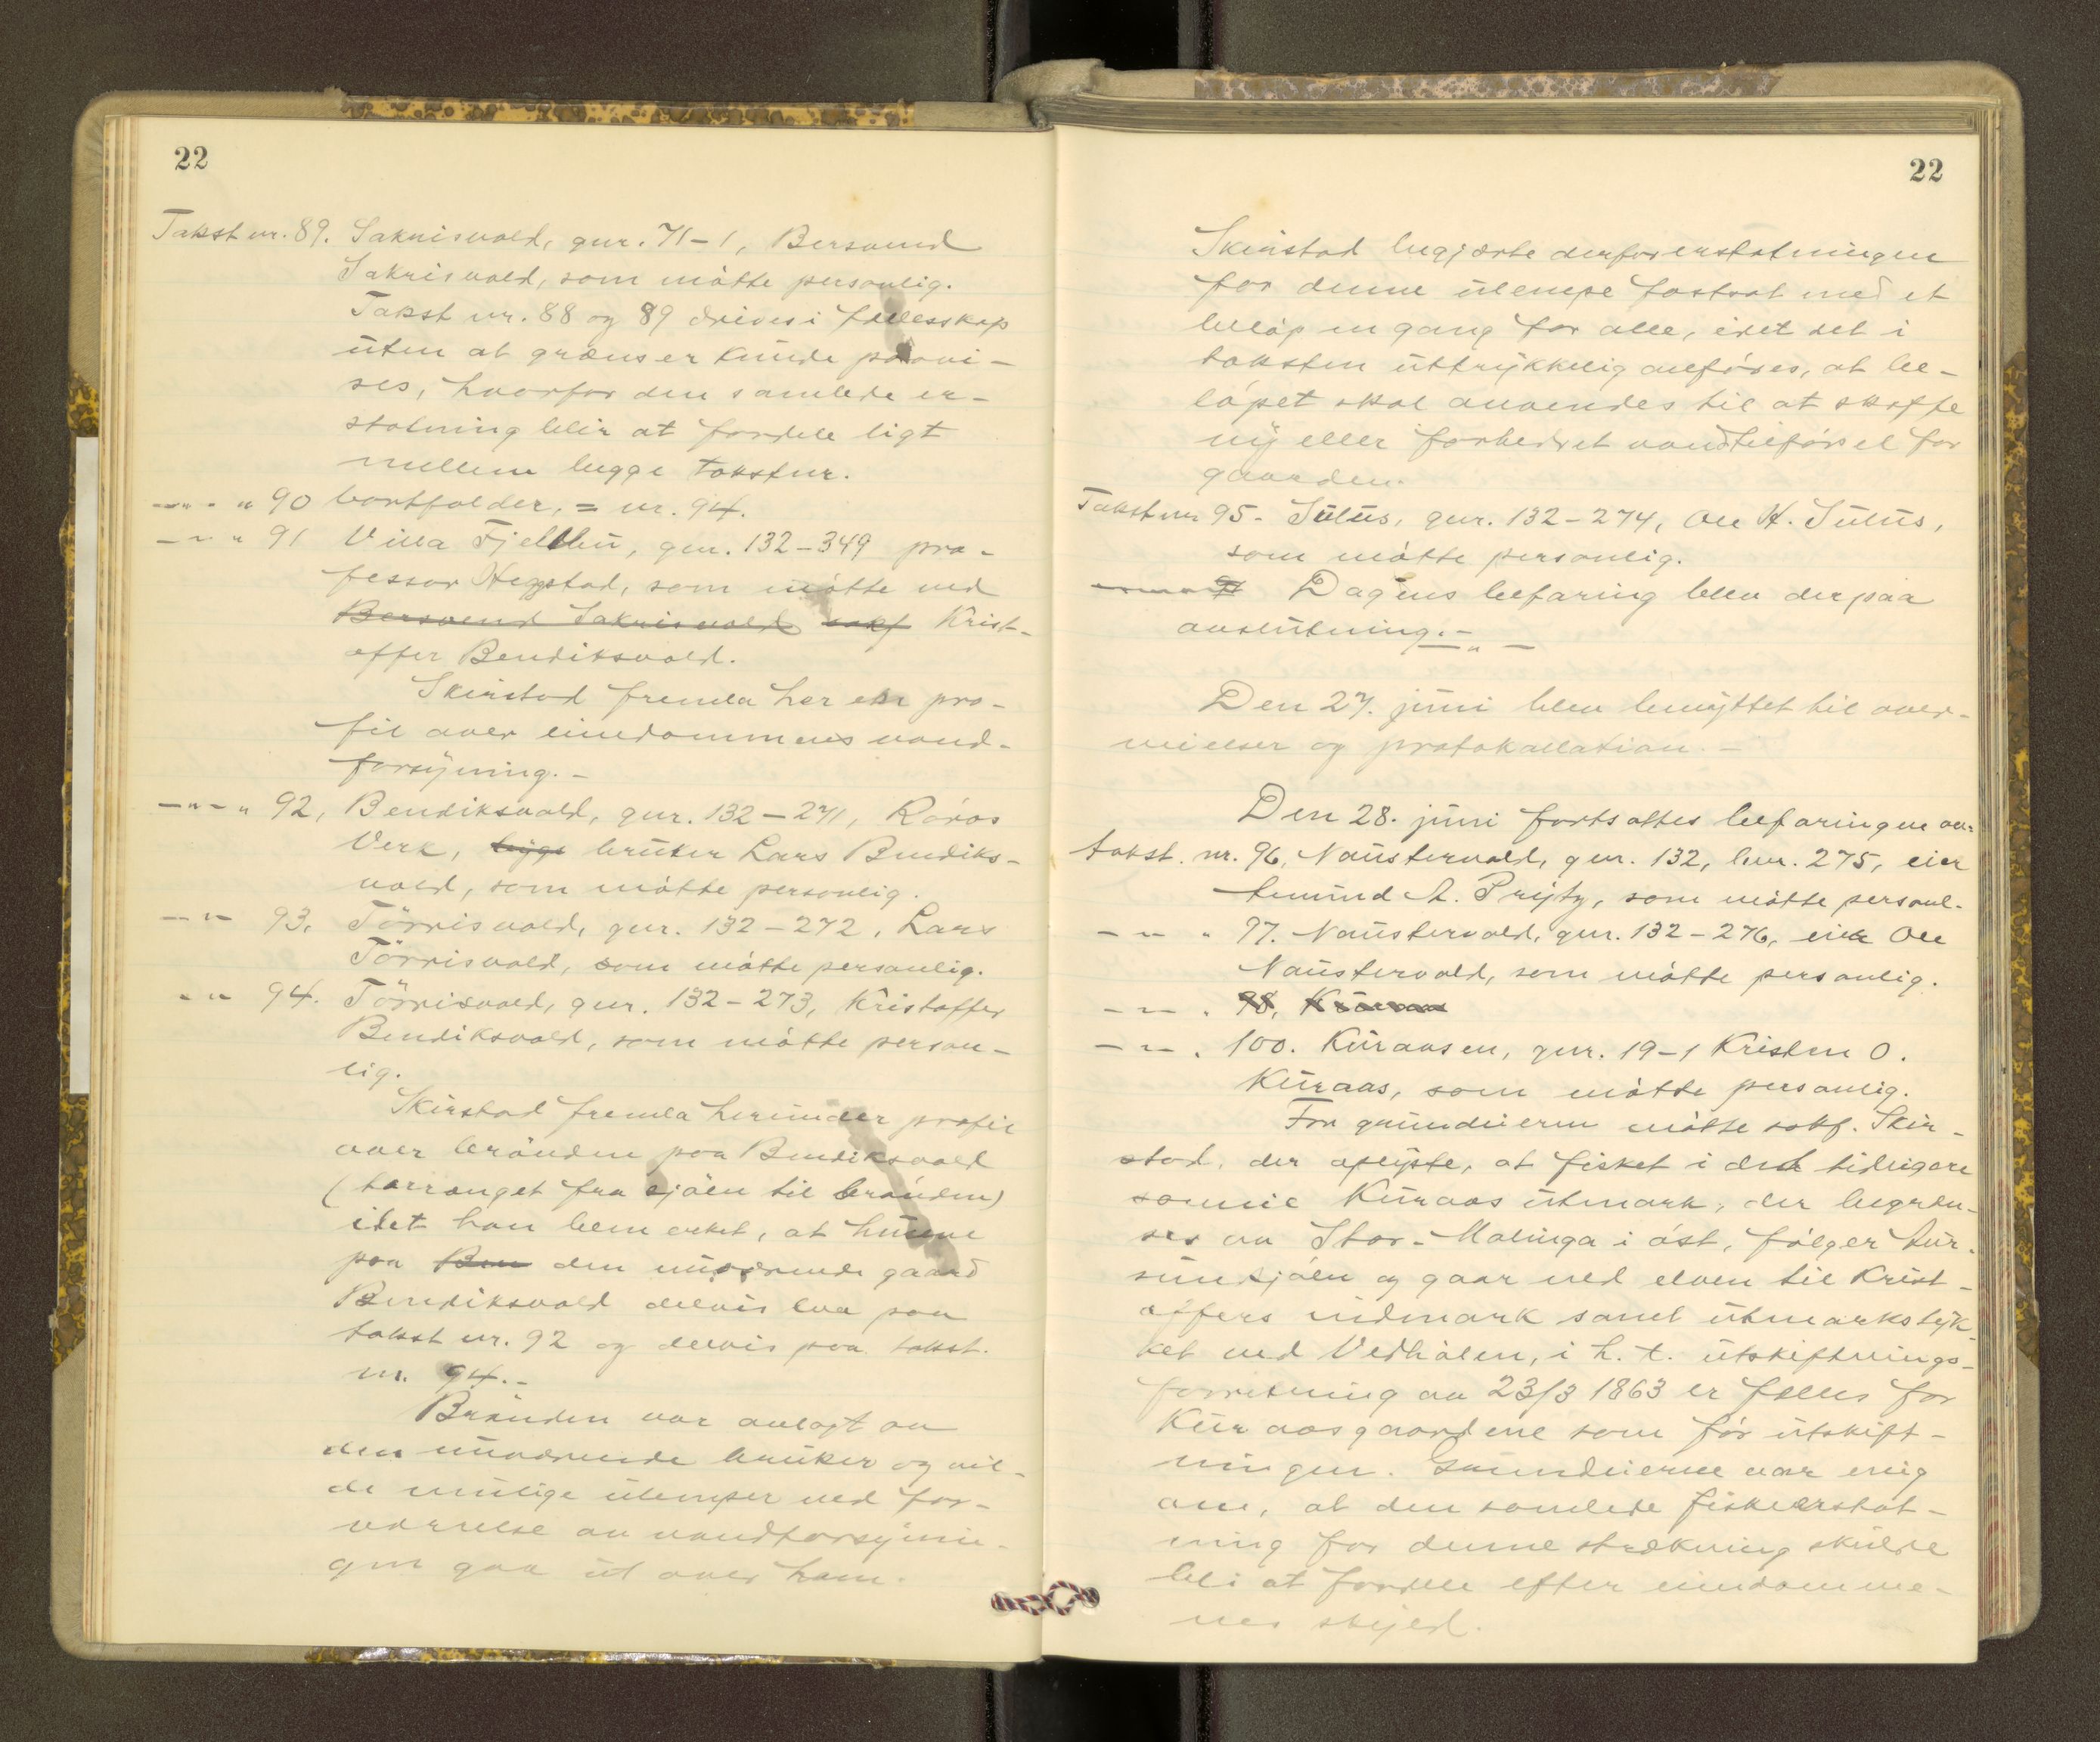 22
Takst nr. 89. Sakrisvold, gnr. 71-1, Bersvend
Sakrisvold, som møtte personlig.
Takst nr. 88 og 89 drives i fællesskap
uten at grænser kunde paavi-
ses, hvorfor den samlede er-
statning blir at fordele ligt
mellem begge takstnr.
—"— " 90 bortfalder, = nr. 94.
—"— " 91 Villa Fjellheim, gnr. 132-349 pro-
fessor Hegstad, som møtte ved
Bersvend Sakrisvold sakf Krist-
offer Bendiksvold.
Skirstad fremla her en pro-
fil over eiendommens vand-
forsyning.-
—"— " 92, Bendiksvold, gnr. 132-271, Røros
Verk, bruker Lars Bendiks-
vold, som møtte personlig.
—"— 93. Törrisvold, gnr. 132-272, Lars
Törrisvold, som møtte personlig.
—"— 94. Törrisvold, gnr. 132-273, Kristoffer
Bendiksvold, som møtte person-
lig.
Skirstad fremla herunder profil
over brönden paa Bendiksvold
(terrænget fra sjöen til brönden)
idet han bemerket, at husene
paa Ben den nuværende gaard
Bendiksvold delvis laa paa
takst nr. 92 og delvis paa takst.
nr. 94.-
Brönden var anlagt av
den nuværende bruker og vil-
de mulige ulemper ved for-
værrelse av vandforsynin-
gen gaa ut over ham.
22
Skirstad begjærte derfor erstatningen
for denne ulempe fastsat med et
beløp en gang for alle, idet det i
taksten uttrykkelig anføres, at be-
løpet skal anvendes til at skaffe
ny eller forbedret vandtilførsel for
gaarden.
Takst nr 95- Sulus, gnr. 132-274, Ole H. Sulus,
som møtte personlig.
Dagens befaring blev derpaa
avslutning.-
—"—
Den 27. juni blev benyttet til over-
veielser og protokollation.-
Den 28. juni fortsattes befaringen av:
takst. nr. 96, Naustervold, gnr. 132, bnr. 275, eier
Amund A. Prytz, som møtte personl.
—"— " 97. Naustervold, gnr. 132-276, eier Ole
Naustervold, som møtte personlig.
—"— " 98, Kuraas
—"— " 100. Kuraasen, gnr. 19-1 Kristen O.
Kuraas, som møtte personlig.
For grundeierne møtte sakf. Skir-
stad, der oplyste, at fisket i det tidligere
samei Kuraas utmark, der begræn-
ses av Stor-Molinga i øst, følger Aur-
sundsjøen og gaar ned elven til Krist-
offers indmark samt utmarkstyk-
ket ved Vedhølen, i h. t. utskiftnings-
forretning av 23/3 1863 er fælles for
Kuraasgaardene som før utskift-
ningen. Grundeierne var enig
om, at den samlede fiskeerstat-
ning for denne strækning skulde
bli at fordele efter eiendomme-
nes skyld.